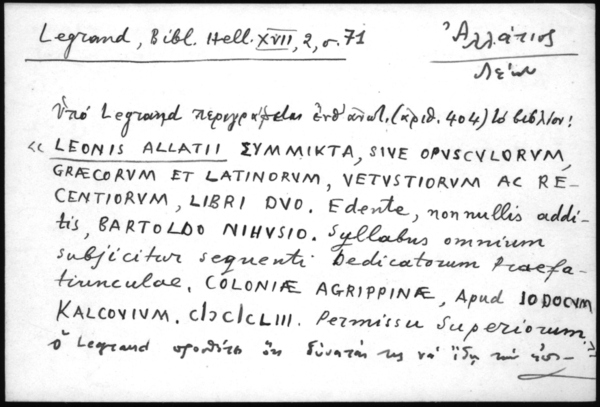 Legrand, Bibl. Hell. XVII, 2, σ. 71
Ἀλλάτιος
Λέων
Ὑπό Legrand περιγράφεται (ἀριθ. 404) τό βιβλίον:
« LEONIS ALLATII ΣΥΜΜΙΚΤΑ, SIVE OPVSCVLORVM,
GRÆCORVM ET LATINORVM, VETVSTIORVM AC RE-
CENTIORVM, LIBRI DVO. Edente, nonnullis addi-
tis, BARTOLDO NIHVSIO. Syllabus omnium
subjicitur sequenti Dedicatorum Praefa-
tiunculae. COLONIÆ AGRIPPINÆ, Apud IODOCVM
KALCOVIVM. CIƆCIƆCLIII. Permissu Superiorum.»
ὁ Legrand προσθέτει ὅτι δύναταί τις νά ἴδῃ τήν